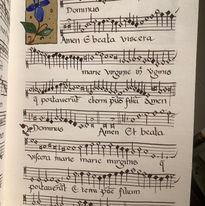 Dominus
Amen Et beata viscera
marie virginis
q portaverūt eterni pris filiū Amen
Dominus Amen Et beata
viscera marie marie virginis
q portaverūt Et eterni pris filium